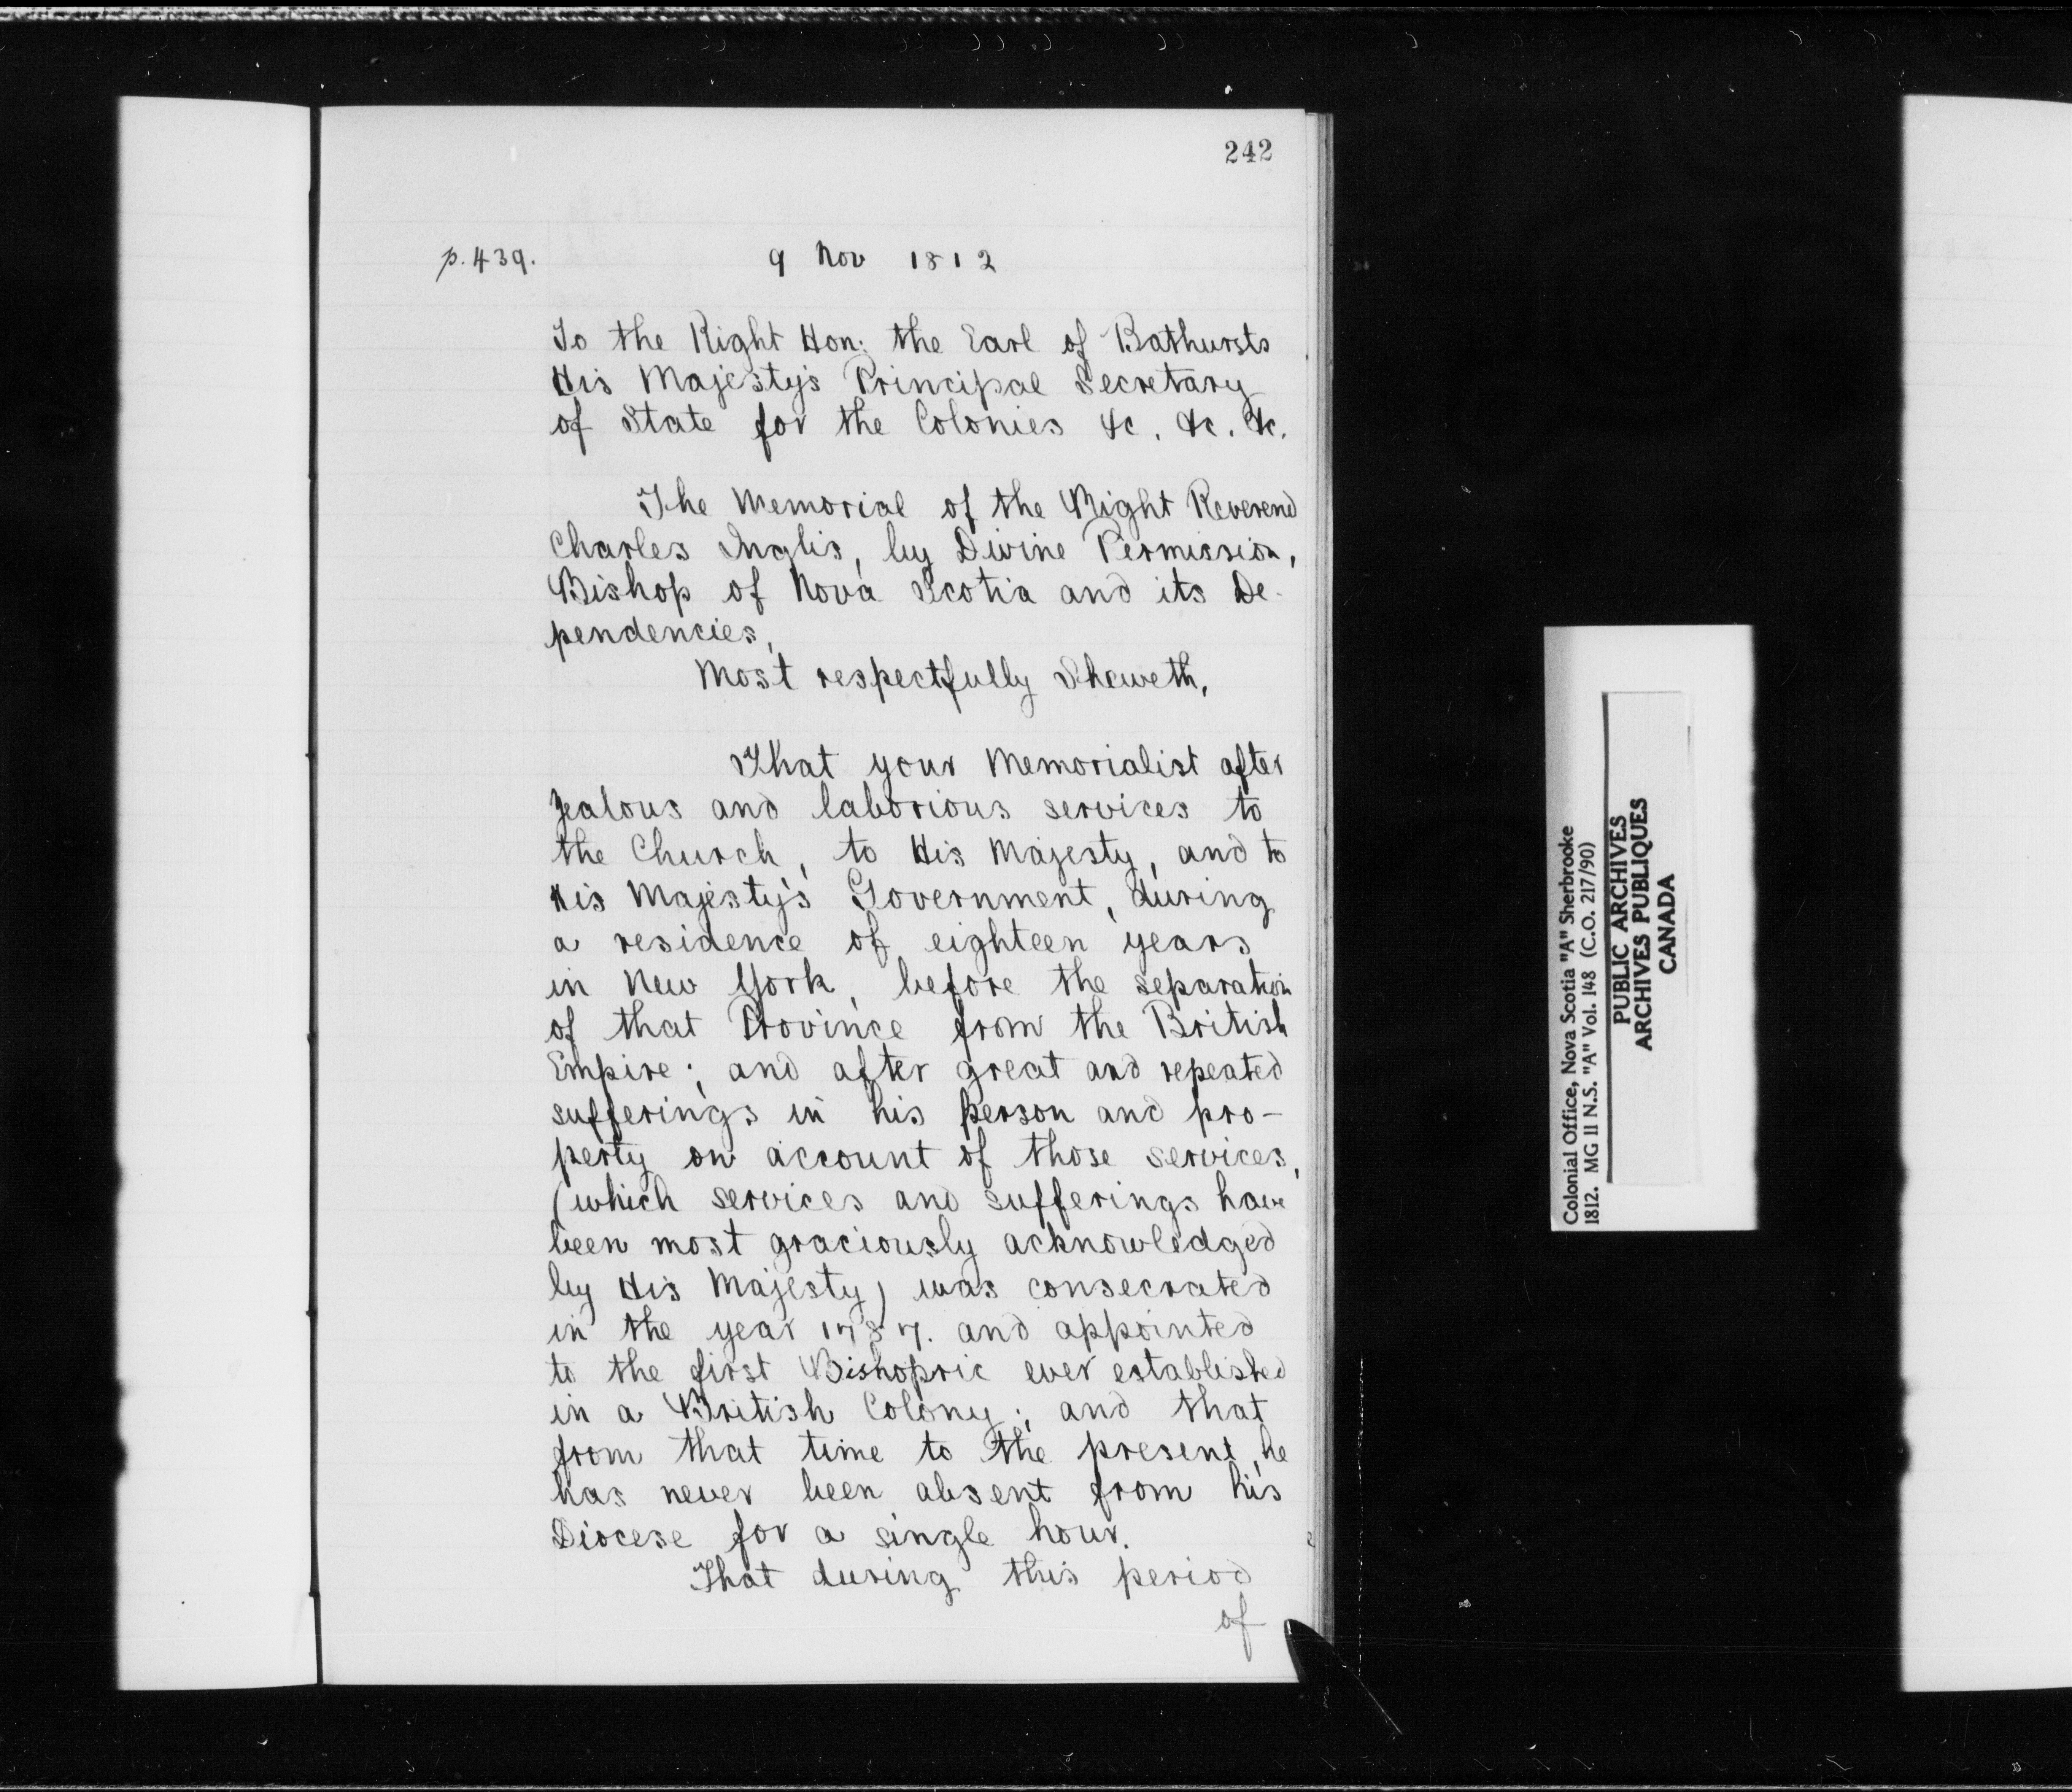 242
p. 439. 9 Nov 1812
To the Right Hon: the Earl of Bathursts
His Majesty's Principal Secretary
of State for the Colonies &c. &c. &c.
The Memorial of the Right Reverend
Charles Inglis, by Divine Permission,
Bishop of Nova Scotia and its De-
pendencies,
Most respectfully Sheweth,
That your Memorialist after
zealous and laborious services to
the Church, to His Majesty, and to
His Majesty's Government, during
a residence of eighteen years
in New York, before the separation
of that Province from the British
Empire; and after great and repeated
sufferings in his person and pro-
perty on account of those services,
(which services and sufferings have
been most graciously acknowledged
by His Majesty) was consecrated
in the year 1787. and appointed
to the first Bishopric ever established
in a British Colony; and that
from that time to the present, he
has never been absent from his
Diocese for a single hour.
That during this period
of
Colonial Office, Nova Scotia "A" Sherbrooke
1812. MG 11 N.S. "A" Vol. 148 (C.O. 217/90)
PUBLIC ARCHIVES
ARCHIVES PUBLIQUES
CANADA